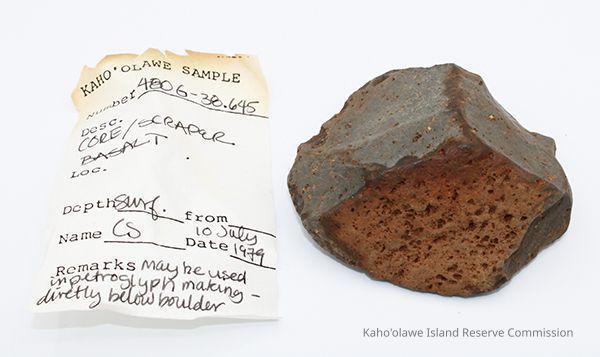 KAHO'OLAWE SAMPLE
Number 4806-38.645
Desc.
CORE/SCRAPER
BASALT
Loc.
Depth surf. from
Name CS 10 July
Date 1979
Remarks May be used
in petroglyph making -
diretly below boulder
Kaho'olawe Island Reserve Commission